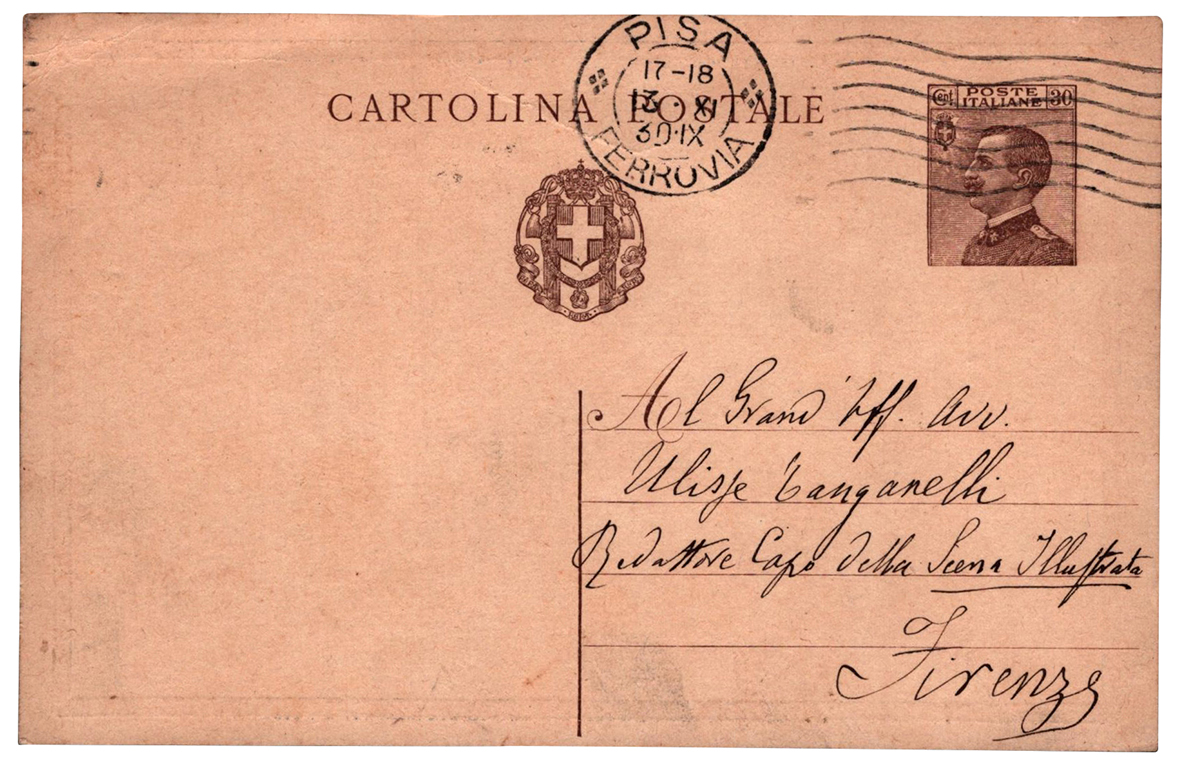 PISA
17-18
13·XI
30·IX
FERROVIA
CARTOLINA POSTALE
Cent. POSTE ITALIANE 30
Al Grand' Uff. Avv.
Ulisse Tanganelli
Redattore Capo della Scena Illustrata
Firenze